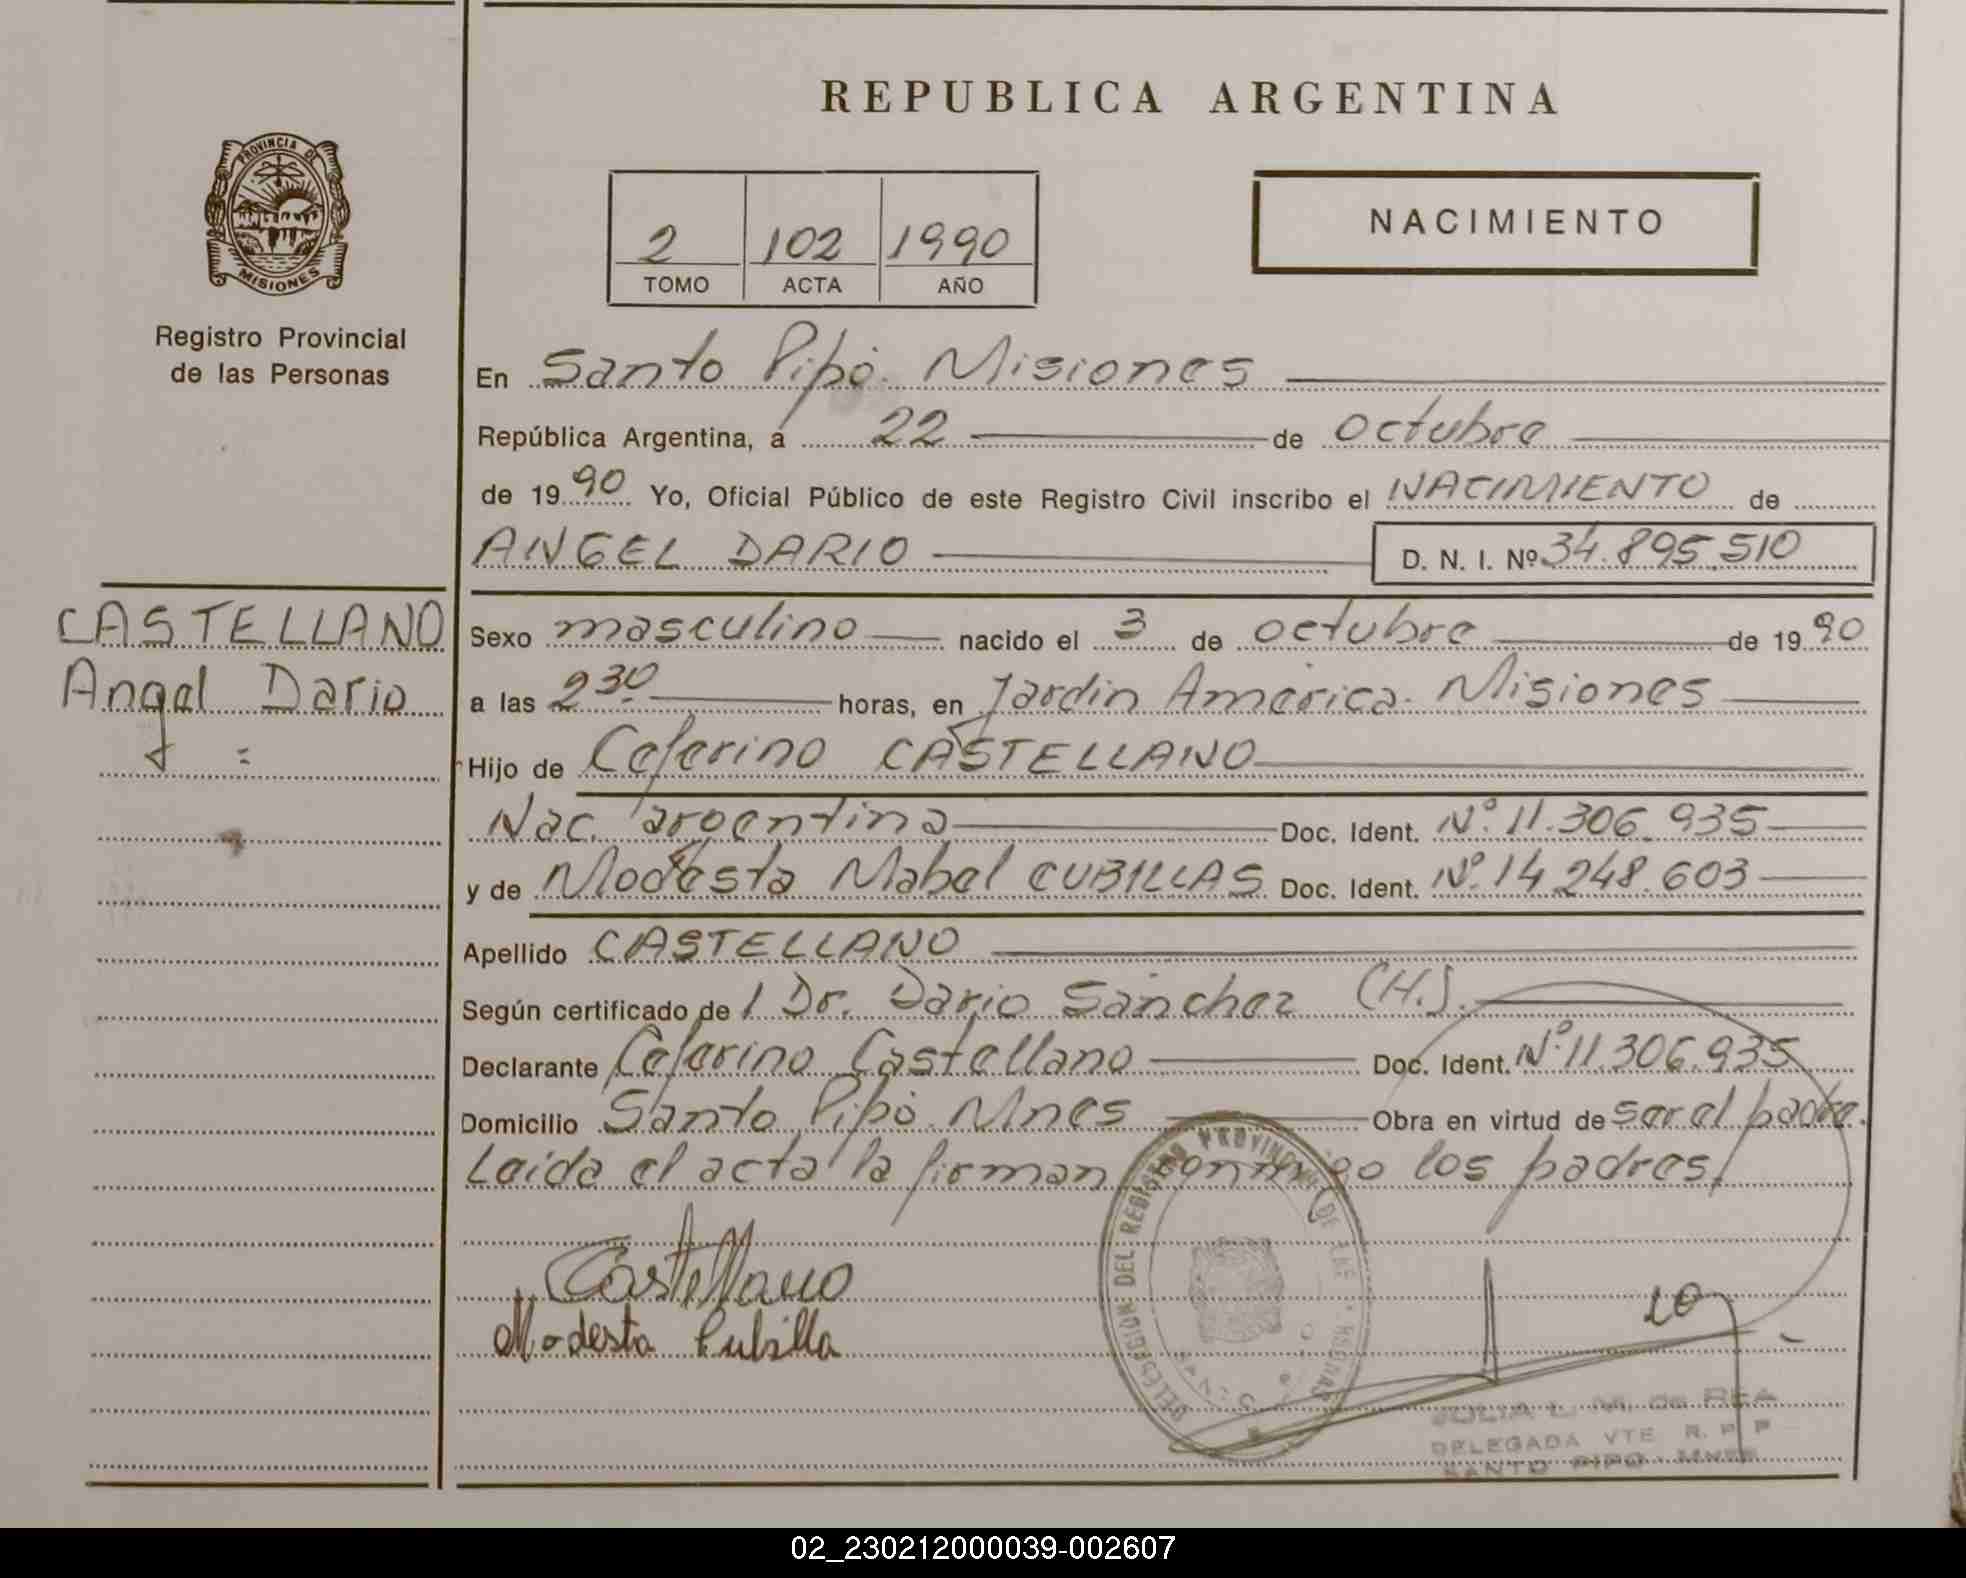 REPUBLICA ARGENTINA
PROVINCIA DE
MISIONES
Registro Provincial
de las Personas
2 102 1990
TOMO ACTA AÑO
NACIMIENTO
En Santo Pipó. Misiones
República Argentina, a 22 de octubre
de 1990 Yo, Oficial Público de este Registro Civil inscribo el NACIMIENTO de
ANGEL DARIO D. N. I. Nº 34.895.510
CASTELLANO
Angel Dario
Sexo masculino nacido el 3 de octubre de 1990
a las 2 30 horas, en Jardín América. Misiones
Hijo de Ceferino CASTELLANO
Nac. argentina Doc. Ident. Nº 11.306.935
y de Modesta Mabel CUBILLAS Doc. Ident. Nº 14.248.603
Apellido CASTELLANO
Según certificado de l Dr. Dario Sánchez (H.).
Declarante Ceferino Castellano Doc. Ident. Nº 11.306.935
Domicilio Santo Pipó. Mnes Obra en virtud de ser el padre.
Leida el acta la firman conmigo los padres
Castellano
Modesta Cubilla
DELEGACION DEL REGISTRO PROVINCIAL DE LAS PERSONAS
SANTO
JULIA L. M. De REA
DELEGADA VTE R. P. P
SANTO PIPO - MNES
02_230212000039-002607